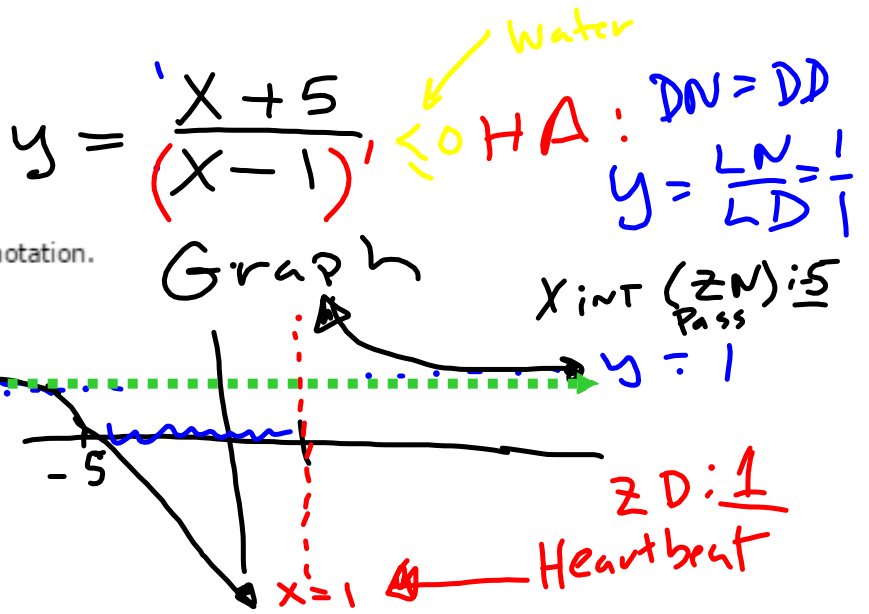 Water
y = x + 5 / (x - 1)' ≤ 0
HA :
DN = DD
y = LN / LD = 1 / 1
notation.
Graph
X inT (ZN) : -5
Pass
y = 1
-5
ZD : 1
Heartbeat
x = 1